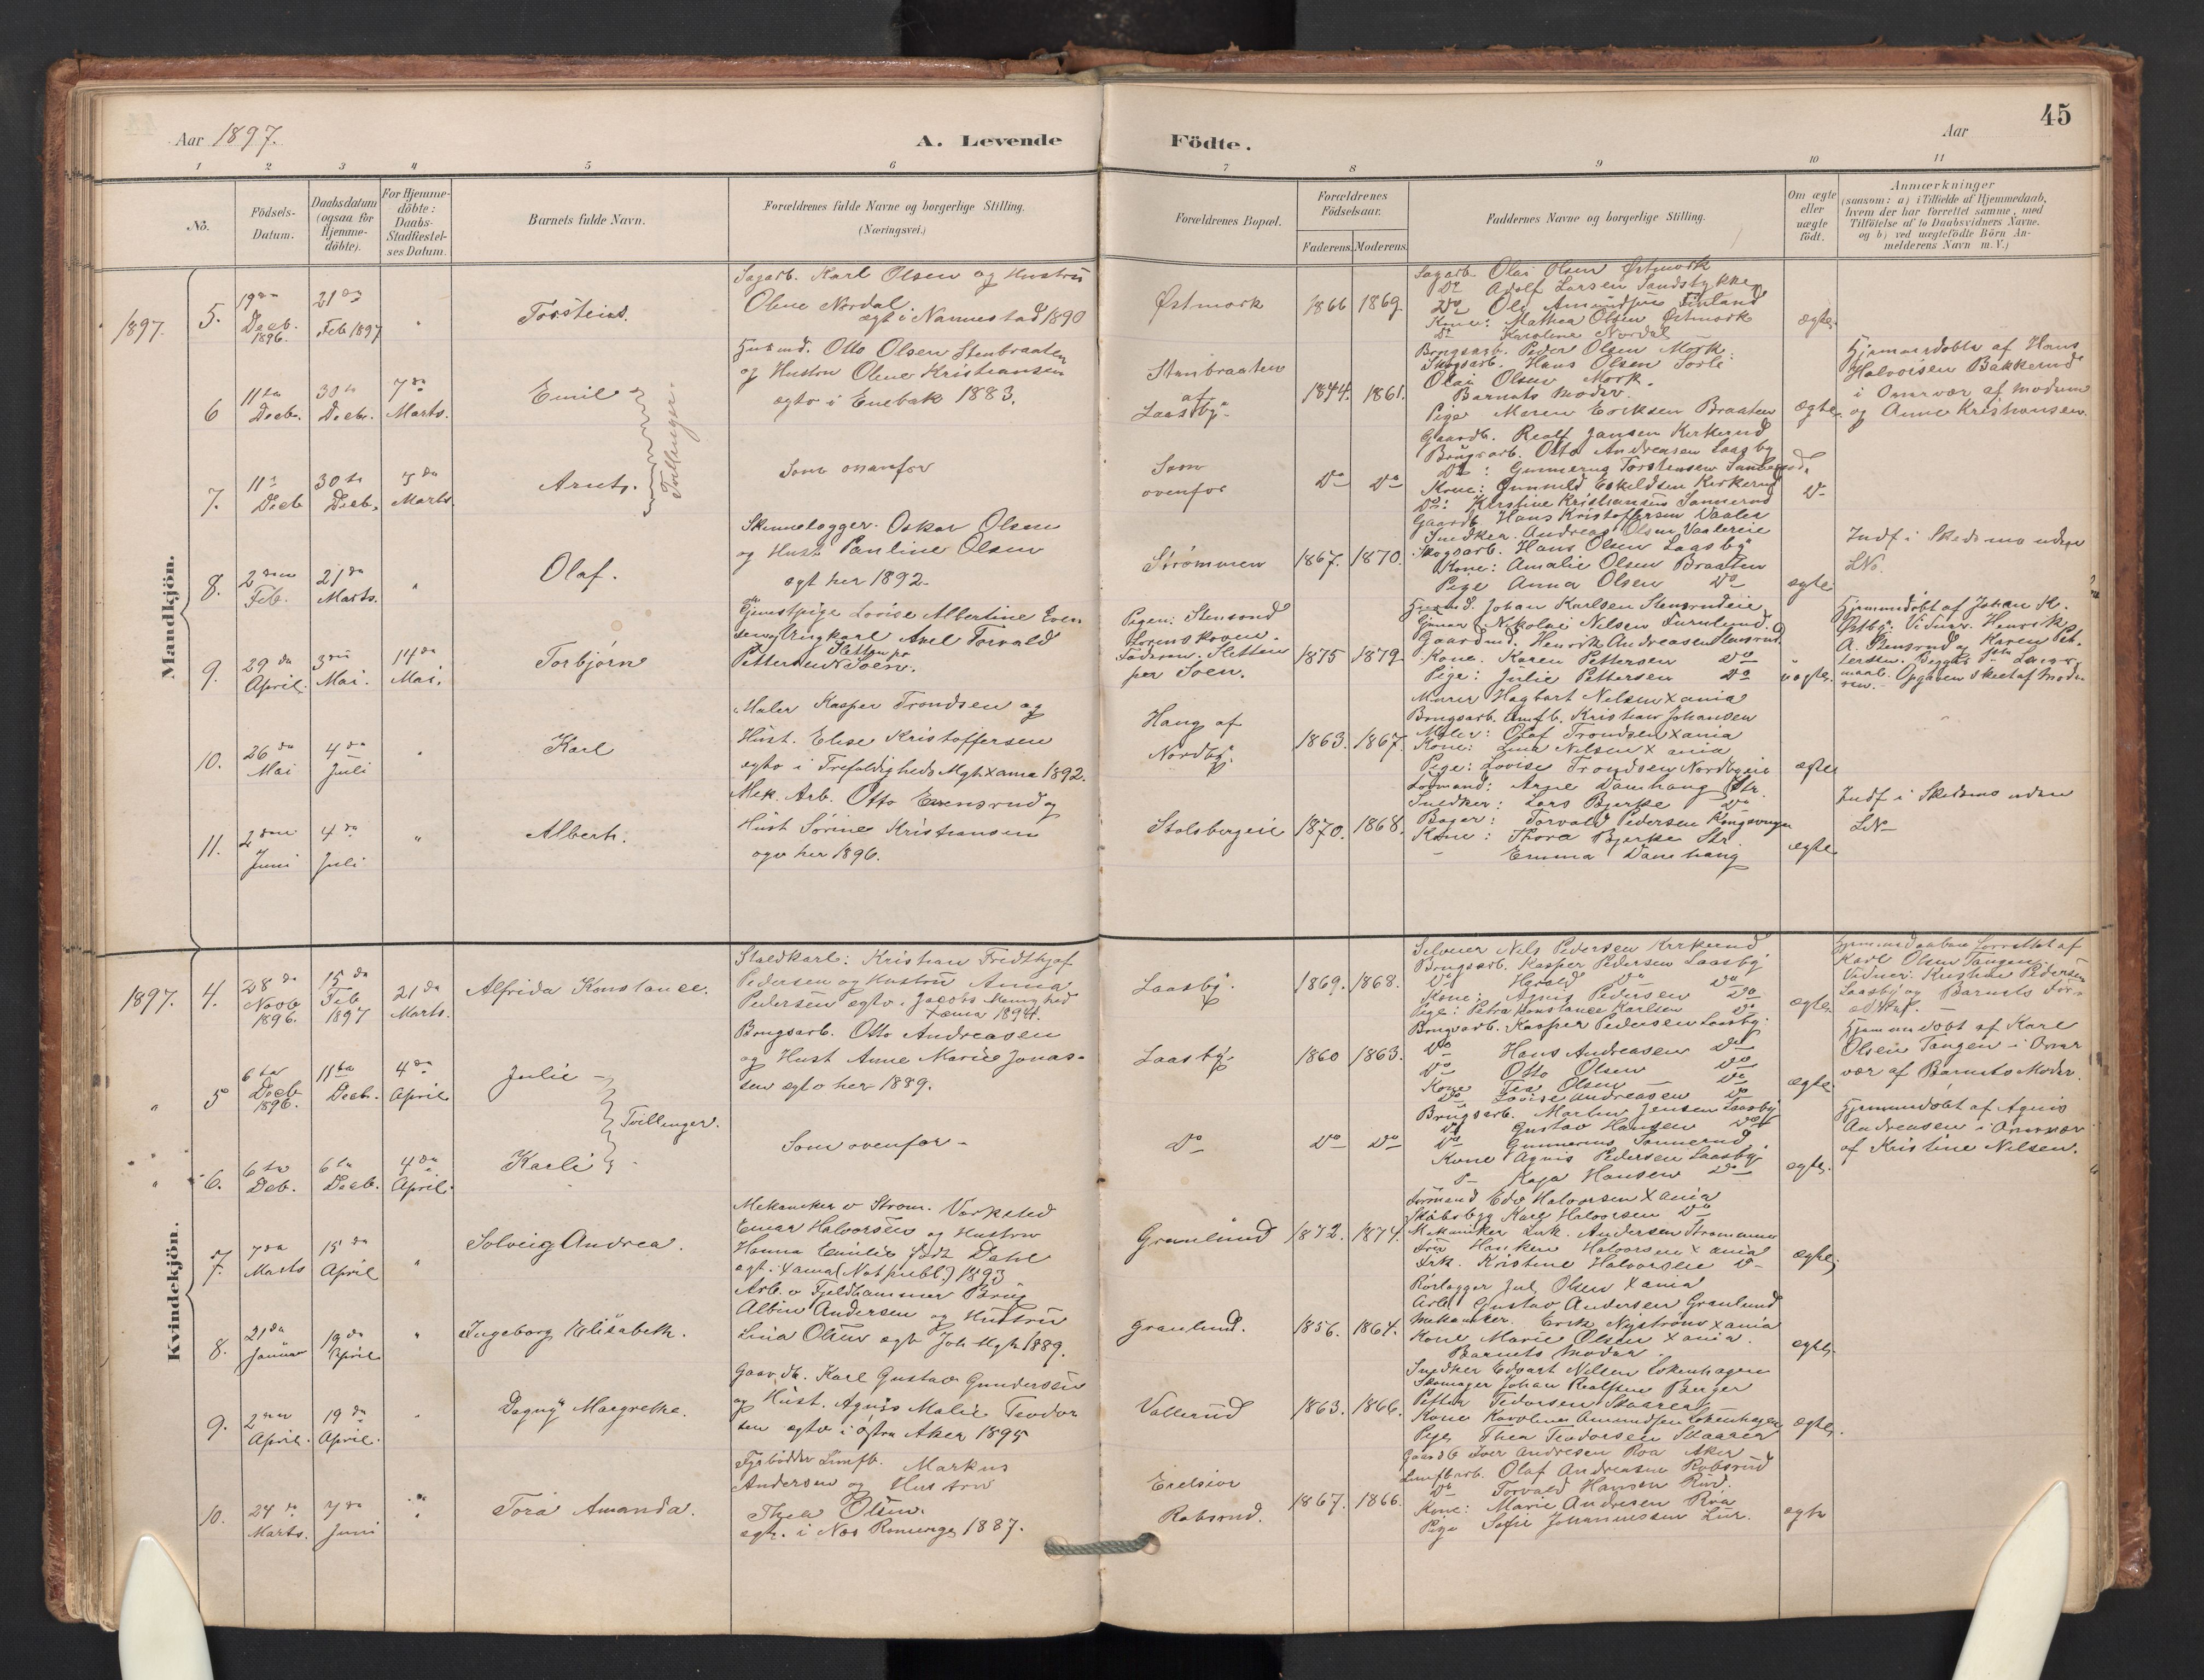 45
Aar 1897.
A. Levende Födte.
Aar
1 2 3 4 5 6 7 8 9 10 11
No.
Födsels-
Datum.
Daabsdatum
(ogsaa for
Hjemme-
döbte).
For Hjemme-
döbte:
Daabs-
Stadfæstel-
ses Datum.
Barnets fulde Navn.
Forældrenes fulde Navne og borgerlige Stilling.
(Næringsvei.)
Forældrenes Bopæl.
Forældrenes
Födselsaar.
Faderens. Moderens.
Faddernes Navne og borgerlige Stilling.
Om ægte
eller
uægte
födt.
Anmærkninger
(saasom: a) i Tilfælde af Hjemmedaab,
hvem der har forrettet samme, med
Tilföielse af to Daabsvidners Navne.
og b) ved uægtefödte Börn An-
melderens Navn m. V.)
Mandkjön.
1897. 5.
19de
Decb.
1896.
21de
Feb 1897
"
Torstein.
Sagarb. Karl Olsen og Hustru
Oline Nordal.
egt i Nannestad 1890
Østmork
1866 1869
Sagarb. Olai Olsen Østmork
Do Adolf Larsen Sandstykket
Do Ole Amundsen Finland
Kone: Mathea Olsen Østmork
Do Karoline Nordal
ægte.
6
11te
Decb.
30te
Decb.
7de
Marts.
Emil
Tvillinger
Husmd. Otto Olsen Stenbraaten
og Hustru Oline Kristiansen
egtv i Enebak 1883.
Stenbraaten
af
Laasby.
1844. 1861.
Brugsarb. Peder Olsen Mork.
Skogsarb. Hans Olsen Torli
Olai Olsen Mork.
Barnets Moder.
Pige Maren Eriksen Braaten
ægte.
Hjemmedøbte af Hans
Halvorsen Bakkerud
i Overvær af modren
og Anne Kristiansen
7.
11te
Decb
30te
Decb.
7de
Marts.
Arnt.
Som ovanfor
Som
ovenfor
Do Do
Gaardb. Realf Jansen Kirkerud
Brugsarb. Otto Andreasen Laasby
Do: Gunnerius Torstensen
Kone: Gunnild Eskildsen Kirkerud
Do: Kirstine Kristiansen Tannerud
Do
8.
2den
Feb.
21de
Marts.
"
Olaf.
Skinnelægger. Oskar Olsen
og Hust. Pauline Olsen
egt her 1892.
Strømmen
1867. 1870.
Gaardb. Hans Kristoffersen Vaaler
Snedker. Andreas Olsen Vaalereie
Skogsarb. Hans Olsen Laasby
Kone: Amalie Olsen Braaten
Pige Anna Olsen Do
ægte
Indf i Skedsmo uden
LNo.
9.
29de
April.
3die
Mai.
14de
Mai.
Torbjørn
Tjenestpige Lovise Albertine Even
sen og Ungkarl Axel Torvald
Pettersen Sletten pr Soen.
Pigen: Stensrud
Lorenskoven.
Faderen. Sletten
per Soen.
1875 1879
Husmd. Johan Karlsen Stensrudeie
Nikolai Nilsen Furulund.
Gaardmd. Henrik Andreasen Stensrud
Kone. Karen Pettersen Do
Pige: Julie Pettersen Do
uægte.
Hjemmedøbt af Johan K.
Østby. Vidner: Henrik
A. Stensrud og Karen Pet-
tersen. Begges 1ste Leier-
maal. Opgaven skeet af Mode-
ren.
10.
26de
Mai
4de
Juli
"
Karl
Maler Kasper Trondsen og
Hust. Elise Kristoffersen
egtv i Trefoldigheds Mgh Xania 1892.
Haug af
Nordby.
1863. 1867.
Murer Hagbart Nilsen Xania
Brugsarb. Kristian Johansen
Maler: Olaf Trondsen Xania
Kone: Lina Nilsen Xania
Pige: Lovise Trondsen Nordbyeie
ægte
11.
2den
Juni
4de
Juli
"
Albert.
Mek. Arb. Otto Evensrud og
Hust Sørine Kristiansen
egtv her 1896.
Stalsbergeie
1870. 1868.
Formand: Arne Damhaug Str.
Snedker: Lars Bjerke Do
Bager: Torvald Pedersen Kongsvinger
Kone: Thora Bjerke Str.
- Emma Damhaug
ægte
Indf i Skedsmo uden
LNo
Kvindekjön.
1897. 4.
28de
Novb
1896.
15de
Feb
1897
21de
Marts.
Alfrida Konstance.
Staldkarl: Kristian Fredthjof
Pedersen og Hustru Anna
Pedersen egtv i Jacobs Menighed
Xania 1894.
Laasby.
1869. 1868.
Nils Pedersen Kirkerud
Brugsarb. Kasper Pedersen Laasby
Do Harald Do Do
Kone: Agnis Pedersen Do
Pige: Petra Konstance Karlsen Do
ægte.
Hjemmedaaben forrettet af
Karl Olsen Tangen
Vidner: Kristine Pedersen
Laasby og Barnets For-
ældre.
" 5
6te
Decb
1896.
11te
Decb.
4de
April
Julie
Tvillinger.
Brugsarb. Otto Andreasen
og Hust Anne Marie Jonas-
sen egtv her 1889.
Laasby
1860 1863.
Brugsarb. Kasper Pedersen Laasby.
Do Hans Andreasen Do
Do Otto Olsen Do
Kone Tea Olsen Do
Do Lovise Andreasen Do
ægte
Hjemmedøbt af Karl
Olsen Tangen i Over
vær af Barnets Moder.
" 6.
6te
Deb.
6te
Decb.
4de
April.
Karli
Som ovenfor
Do
Do Do
Brugsarb. Martin Jensen Laasby
Do Gustav Hansen Do
Do Gunnerius Tannerud.
Kone Agnis Pedersen Laasby
P- Kaja Hansen Do
ægte.
Hjemmedøbt af Agnis
Andreasen i Overvær
af Kristine Nilsen.
7.
7de
Marts
15de
April
"
Solveig Andrea.
Mekaniker v Strøm. Værksted
Einar Halvorsen og Hustru
Hanna Emilie født Dahl
egt. i Xania (Not publ.) 1893
Granlund
1872. 1874.
Formand Edv Halvorsen Xania
Skibsbyg Karl Halvorsen Do
Mekaniker Andersen Strømmen
Fru Halvorsen Xania
Frk. Kristine Halvorsen Do
ægte.
8.
21de
Januar
19de
April
"
Ingeborg Elisabeth.
Arb. v Fjeldhammer Brug
Albin Andersen og Hustru
Lina Olsen egt Joh Mgh 1889.
Granlund.
1856. 1864.
Rørlægger Jul Olsen Xania
Arb Gustav Andersen Granlund
Mekaniker. Erik Nystrøm Xania
Kone Marie Olsen Xania.
Barnets Moder.
ægte.
9.
2den
April.
19de
April.
"
Dagny Margrethe.
Gaardb. Karl Gustav Gundersen
og Hust. Agnis Malie Teodor
sen egtv i Østre Aker 1895
Vallerud
1863. 1866.
Snedker Edvart Nilsen Lokenhagen
Skomager Johan Realfsen Berger
Petter Tedorsen Skaarer
Kone Karoline Amundsen Lokenhagen
Pige Thea Teodorsen Skaarer
ægte.
10.
24de
Marts.
7de
Juni
"
Tora Amanda.
Fyrbøder Markus
Andersen og Hustru
Thea Olsen.
egt. i Næs Romerige 1887.
Exelsior
Robsrud.
1867. 1866.
Gaardb Iver Andresen Roa Aker
Olaf Andresen Robsrud
Do Torvald Hansen Rud.
Kone: Marie Andresen Roa
Pige Sofie Johannessen Lur.
egte